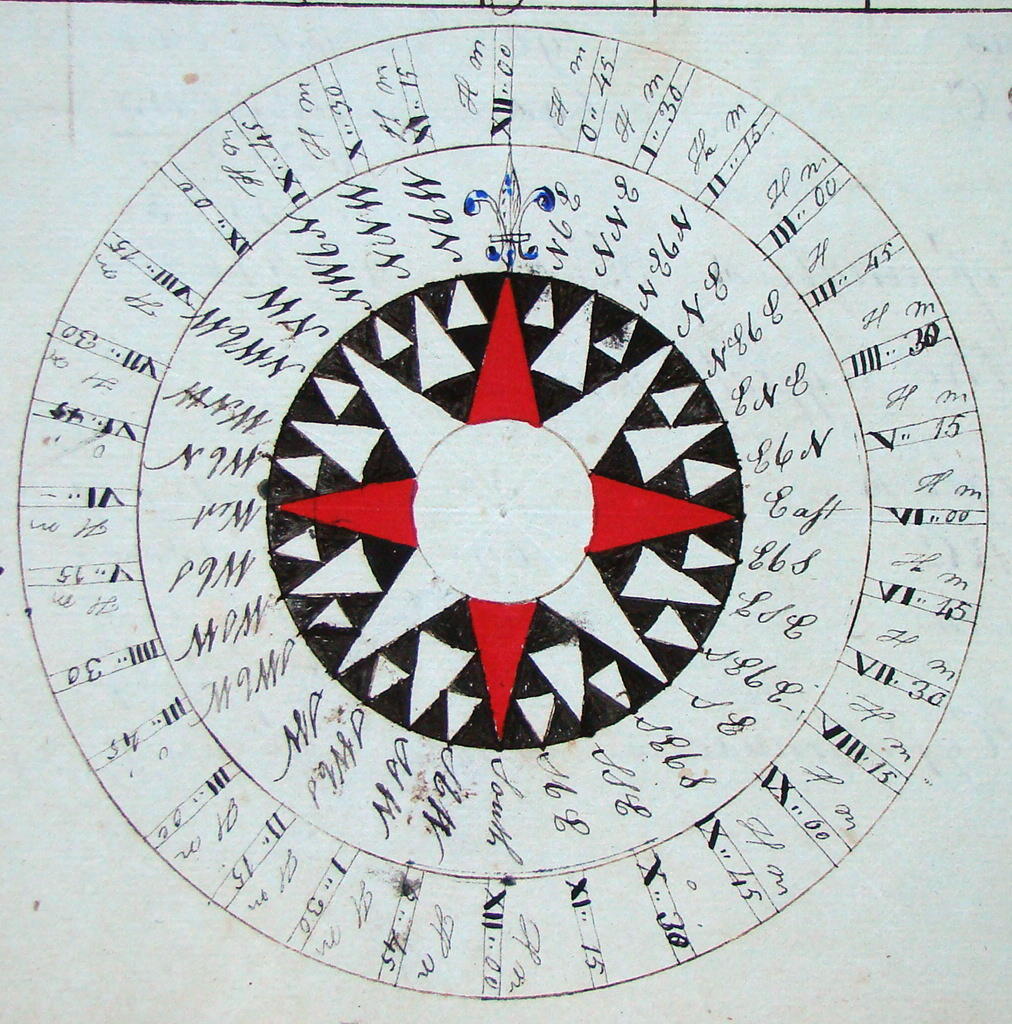 H m
XII..00
H m
0..45
H m
I..30
H m
II..15
H m
III..00
H
III..45
H m
IIII..30
H m
V..15
H m
VI..00
H m
VI..45
H m
VII..30
H m
VIII..15
H m
IX..00
H m
X..30
XI..15
H m
XII..00
H m
0..45
H m
I..30
H m
II..15
H m
III..00
III..45
IIII..30
H m
V..15
H m
VI..
VI..45
H m
VII..30
H m
VIII..15
IX..00
H m
IX..45
H m
X..30
H m
XI..15
NbE
NNE
NEbN
NE
NEbE
ENE
EbN
East
EbS
ESE
SEbE
SE
SEbS
SSE
SbE
South
SbW
SSW
SWbS
SW
SWbW
WSW
WbS
West
WbN
WNW
NWbW
NW
NWbN
NNW
NbW